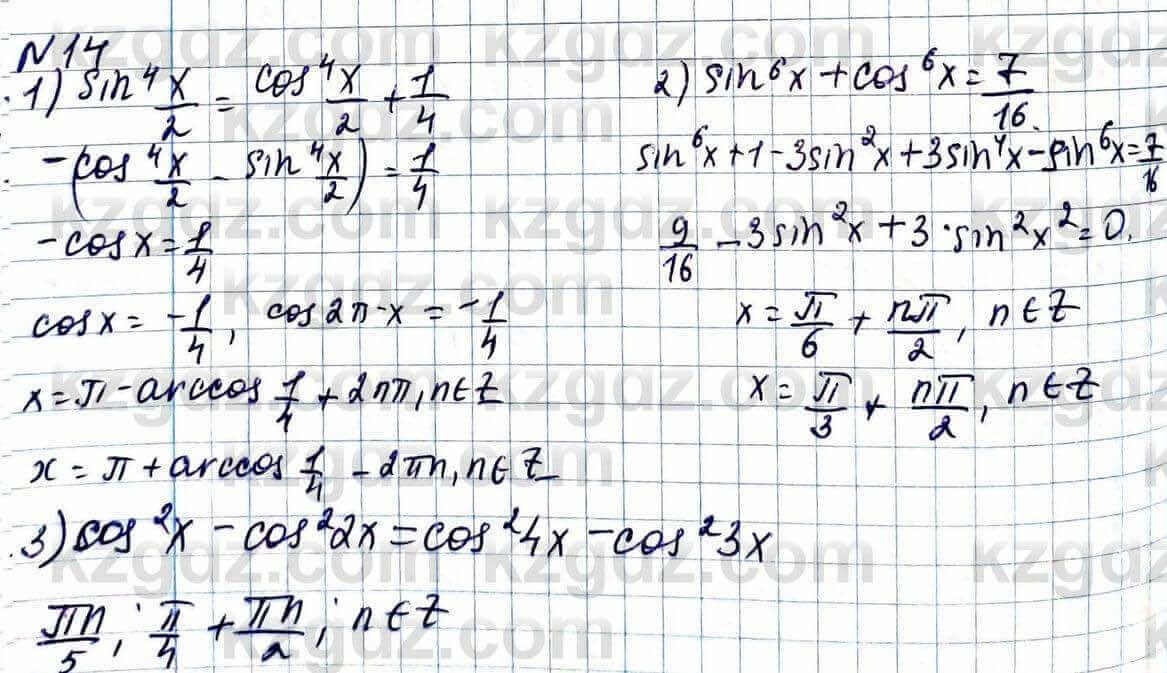 N14
1) sin⁴ x/2 = cos⁴ x/2 + 1/4
-(cos⁴ x/2 - sin⁴ x/2) = 1/4
-cos x = 1/4
cos x = -1/4, cos 2π-x = -1/4
x = π - arccos 1/4 + 2nπ, n∈Z
x = π + arccos 1/4 - 2πn, n∈Z
2) sin⁶x + cos⁶x = 7/16
sin⁶x + 1 - 3sin²x + 3sin⁴x - sin⁶x = 7/16
9/16 - 3sin²x + 3·sin²x² = 0.
x = π/6 + nπ/2, n∈Z
x = π/3 + nπ/2, n∈Z
3) cos²x - cos²2x = cos²4x - cos²3x
πn/5; π/4 + πn/2; n∈Z
kzgdz.com